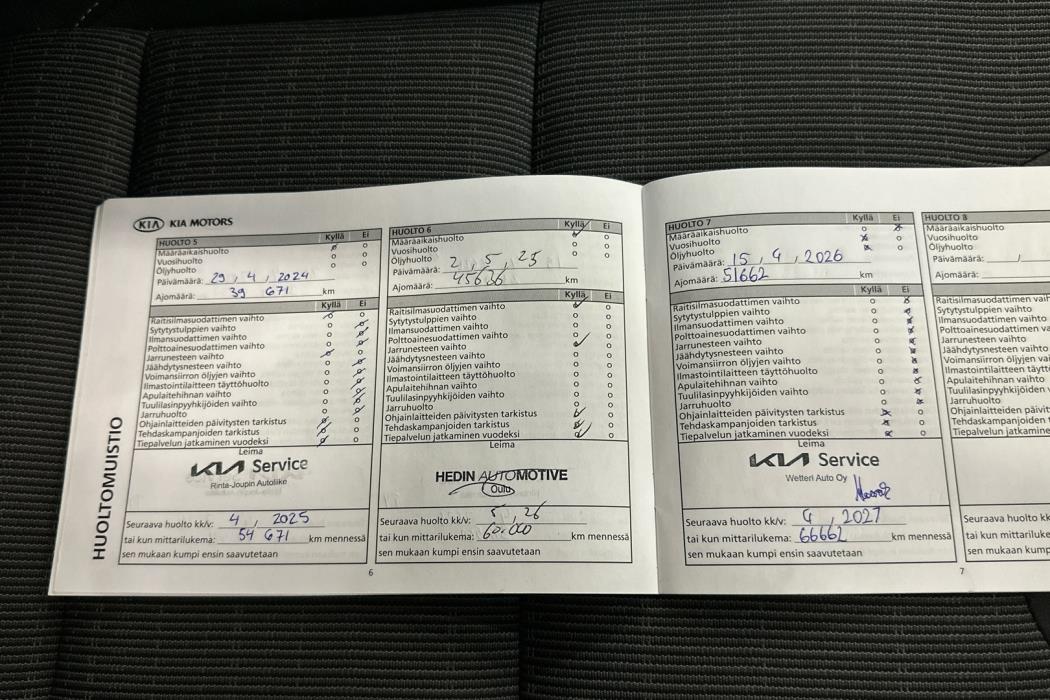 HUOLTOMUISTIO
KIA KIA MOTORS
HUOLTO 5 Kyllä Ei
Määräaikaishuolto
Vuosihuolto
Öljyhuolto
Päivämäärä: 29, 4, 2024
Ajomäärä: 39 671 km
Kyllä Ei
Raitisilmasuodattimen vaihto
Sytytystulppien vaihto
Ilmansuodattimen vaihto
Polttoainesuodattimen vaihto
Jarrunesteen vaihto
Jäähdytysnesteen vaihto
Voimansiirron öljyjen vaihto
Ilmastointilaitteen täyttöhuolto
Apulaitehihnan vaihto
Tuulilasinpyyhkijöiden vaihto
Jarruhuolto
Ohjainlaitteiden päivitysten tarkistus
Tehdaskampanjoiden tarkistus
Tiepalvelun jatkaminen vuodeksi
Leima
KIA Service
Rinta-Joupin Autoliike
Seuraava huolto kk/v: 4, 2025
tai kun mittarilukema: 54 671 km mennessä
sen mukaan kumpi ensin saavutetaan
HUOLTO 6 Kyllä Ei
Määräaikaishuolto
Vuosihuolto
Öljyhuolto
Päivämäärä: 2, 5, 25
Ajomäärä: 45626 km
Kyllä Ei
Raitisilmasuodattimen vaihto
Sytytystulppien vaihto
Ilmansuodattimen vaihto
Polttoainesuodattimen vaihto
Jarrunesteen vaihto
Jäähdytysnesteen vaihto
Voimansiirron öljyjen vaihto
Ilmastointilaitteen täyttöhuolto
Apulaitehihnan vaihto
Tuulilasinpyyhkijöiden vaihto
Jarruhuolto
Ohjainlaitteiden päivitysten tarkistus
Tehdaskampanjoiden tarkistus
Tiepalvelun jatkaminen vuodeksi
Leima
HEDIN AUTOMOTIVE
Oulu
Seuraava huolto kk/v: 5, 26
tai kun mittarilukema: 60.000 km mennessä
sen mukaan kumpi ensin saavutetaan
6
HUOLTO 7 Kyllä Ei
Määräaikaishuolto
Vuosihuolto
Öljyhuolto
Päivämäärä: 15, 4, 2026
Ajomäärä: 51662 km
Kyllä Ei
Raitisilmasuodattimen vaihto
Sytytystulppien vaihto
Ilmansuodattimen vaihto
Polttoainesuodattimen vaihto
Jarrunesteen vaihto
Jäähdytysnesteen vaihto
Voimansiirron öljyjen vaihto
Ilmastointilaitteen täyttöhuolto
Apulaitehihnan vaihto
Tuulilasinpyyhkijöiden vaihto
Jarruhuolto
Ohjainlaitteiden päivitysten tarkistus
Tehdaskampanjoiden tarkistus
Tiepalvelun jatkaminen vuodeksi
Leima
KIA Service
Wetteri Auto Oy
Seuraava huolto kk/v: 4, 2027
tai kun mittarilukema: 66662 km mennessä
sen mukaan kumpi ensin saavutetaan
HUOLTO 8
Määräaikaishuolto
Vuosihuolto
Öljyhuolto
Päivämäärä: /
Ajomäärä:
Raitisilmasuodattimen vaih
Sytytystulppien vaihto
Ilmansuodattimen vaihto
Polttoainesuodattimen va
Jarrunesteen vaihto
Jäähdytysnesteen vaihto
Voimansiirron öljyjen vaih
Ilmastointilaitteen täytt
Apulaitehihnan vaihto
Tuulilasinpyyhkijöiden v
Jarruhuolto
Ohjainlaitteiden päivit
Tehdaskampanjoiden t
Tiepalvelun jatkamine
Seuraava huolto kk
tai kun mittariluke
sen mukaan kump
7